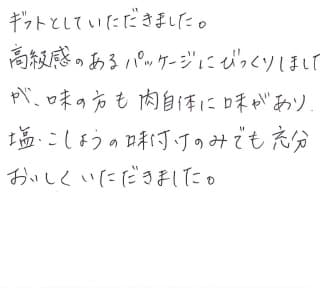 ギフトとしていただきました。
高級感のあるパッケージにびっくりしまして
が、味の方も肉自体に味があり、
塩・こしょうの味付けのみでも充分
おいしくいただきました。